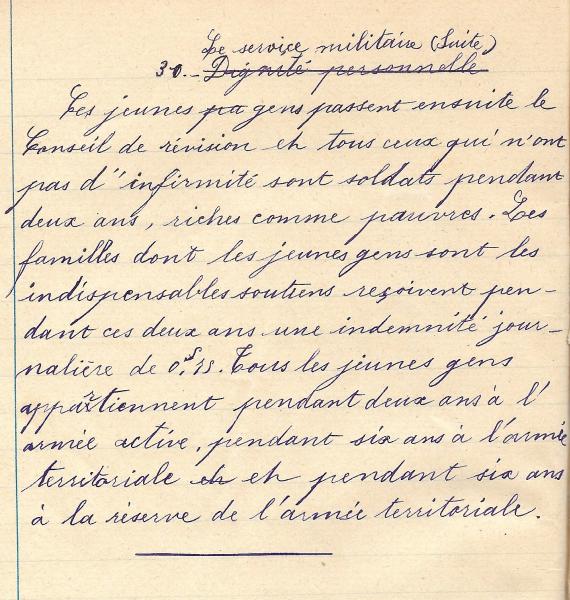 Le service militaire (Suite)
30. _ Dignité personnelle
Les jeunes pa gens passent ensuite le
Conseil de révision et tous ceux qui n'ont
pas d'infirmité sont soldats pendant
deux ans, riches comme pauvres. Les
familles dont les jeunes gens sont les
indispensables soutiens reçoivent pen-
dant ces deux ans une indemnité jour-
nalière de 0,f75. Tous les jeunes gens
appartiennent pendant deux ans à l'
armée active, pendant six ans à l'armée
territoriale et et pendant six ans
à la réserve de l'armée territoriale.